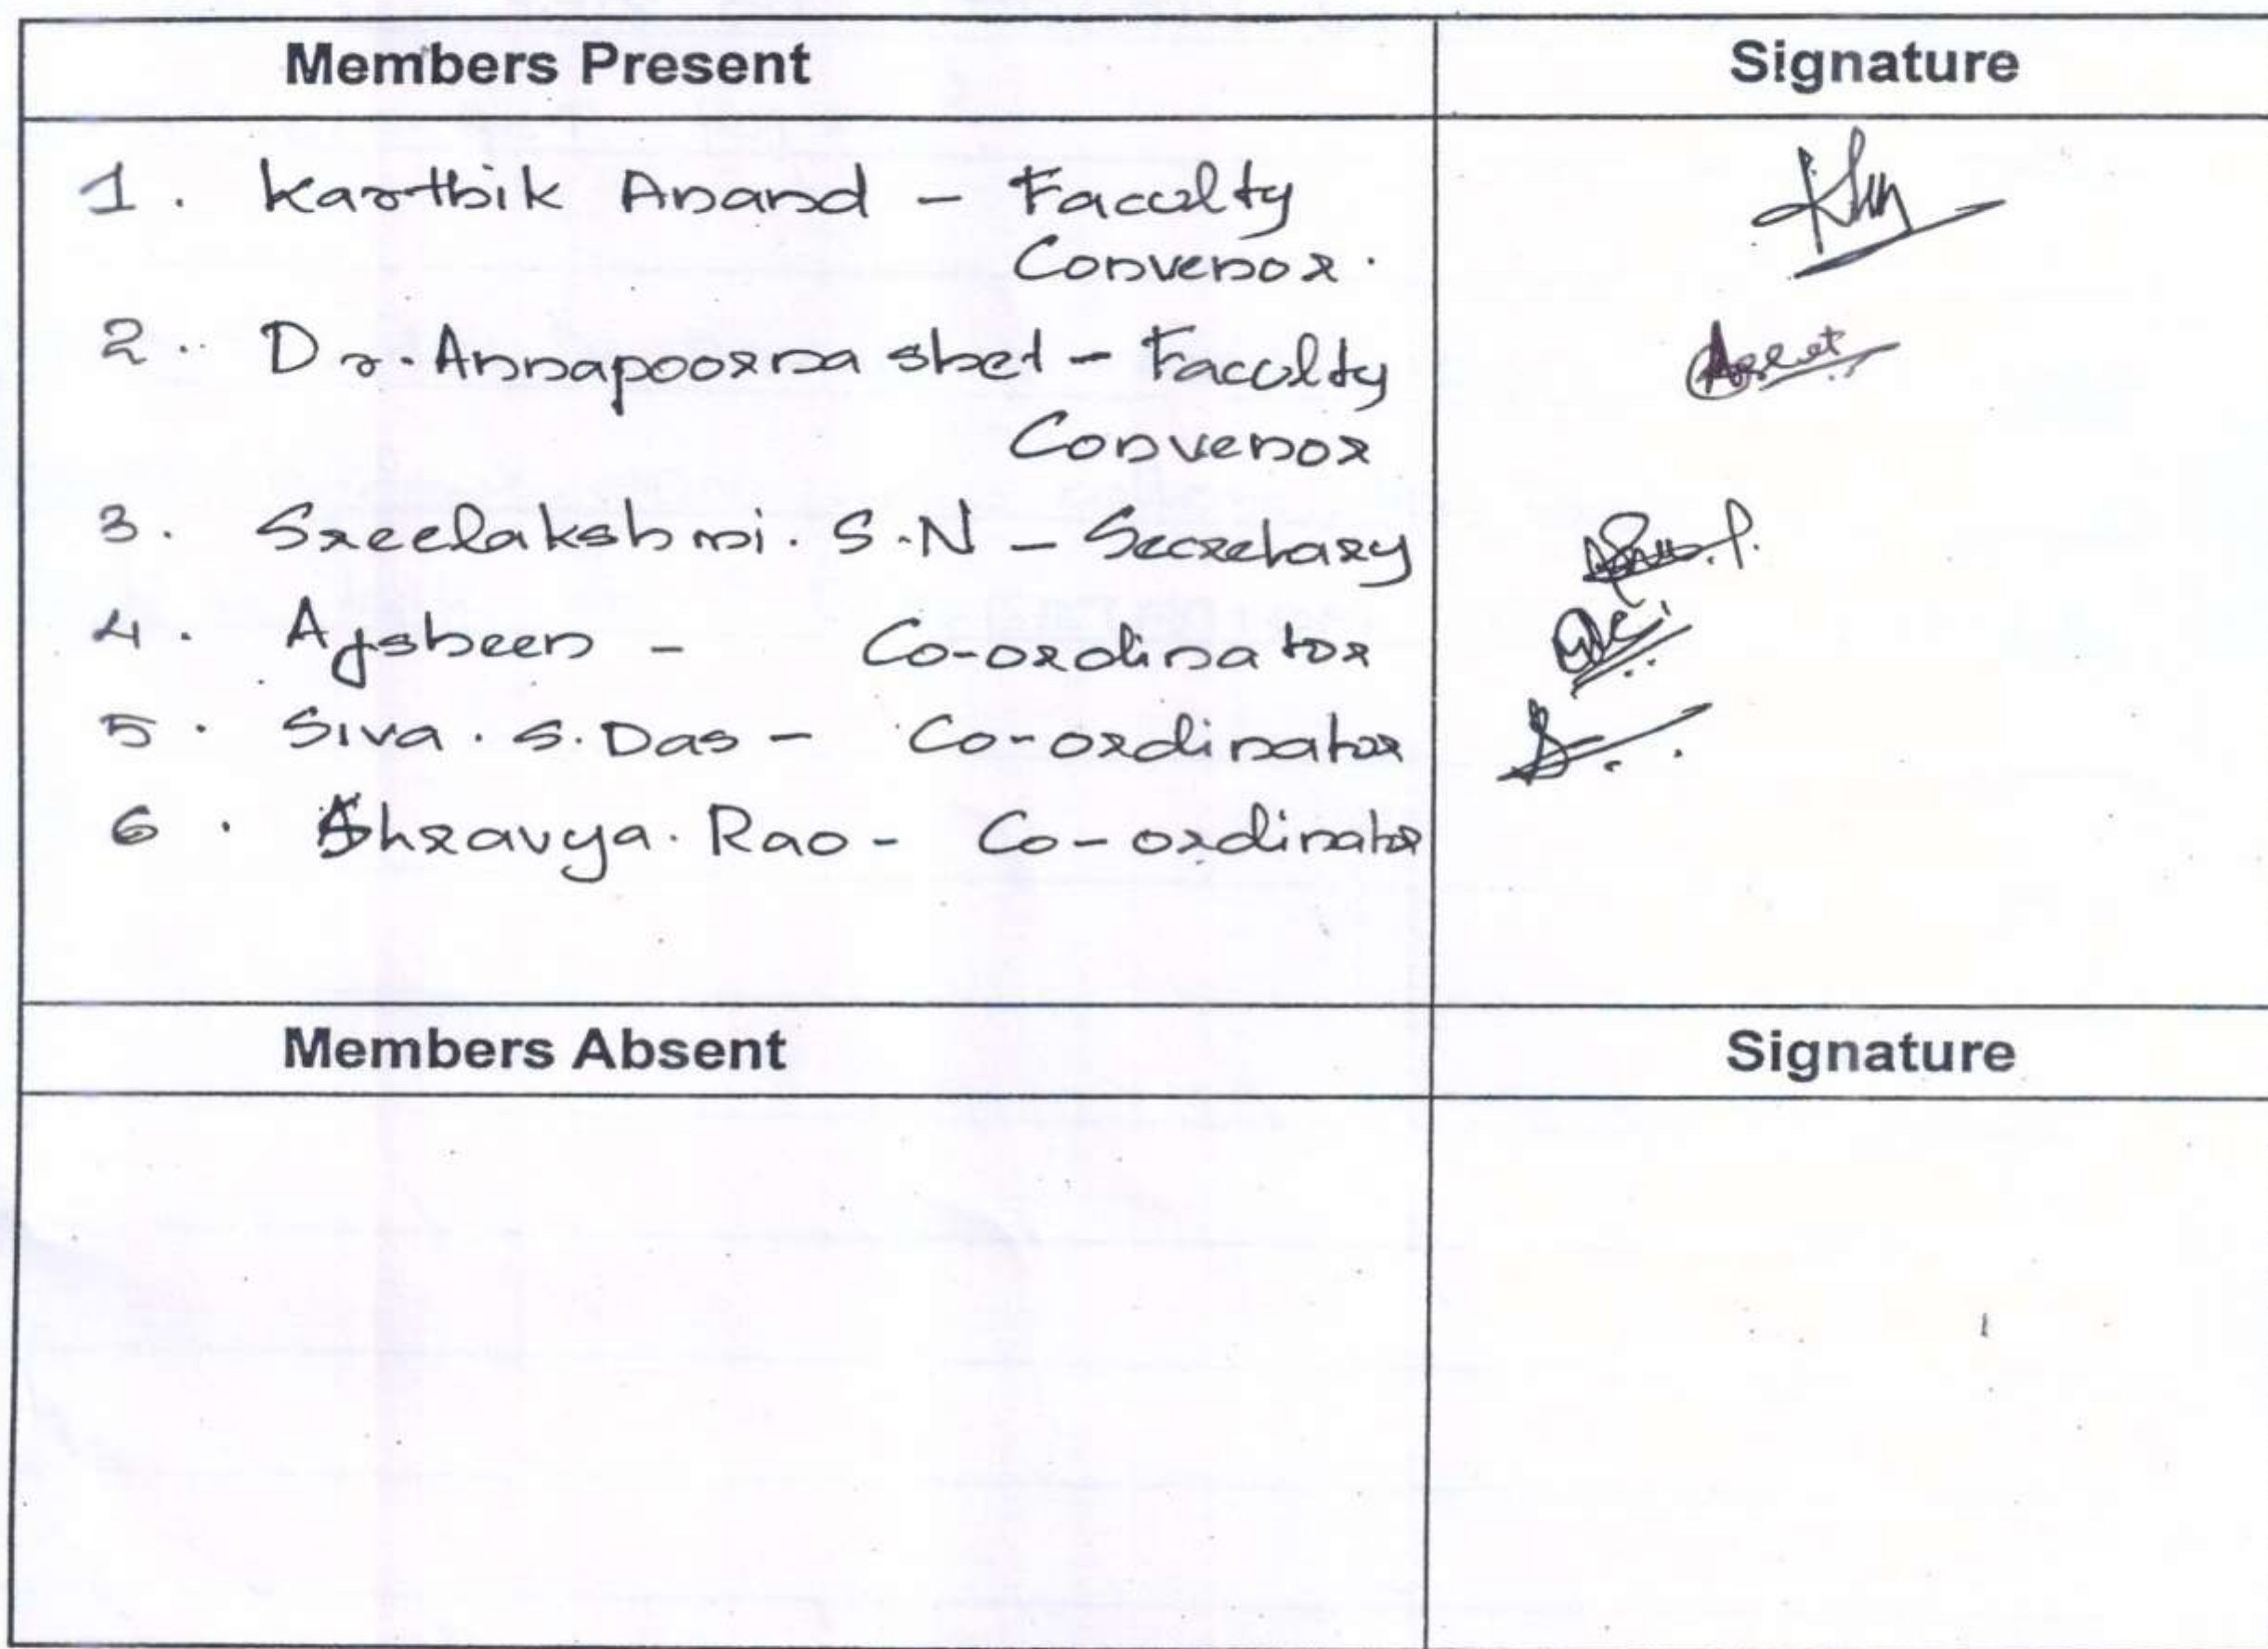 Members Present Signature
1. Karthik Anand - Faculty
Convenor.
2. Dr. Annapoorna shet - Faculty
Convenor
3. Sreelakshmi. S.N - Secretary
4. Ajsheen - Co-ordinator
5. Siva. S. Das - Co-ordinator
6. Shravya. Rao - Co-ordinator
Members Absent Signature